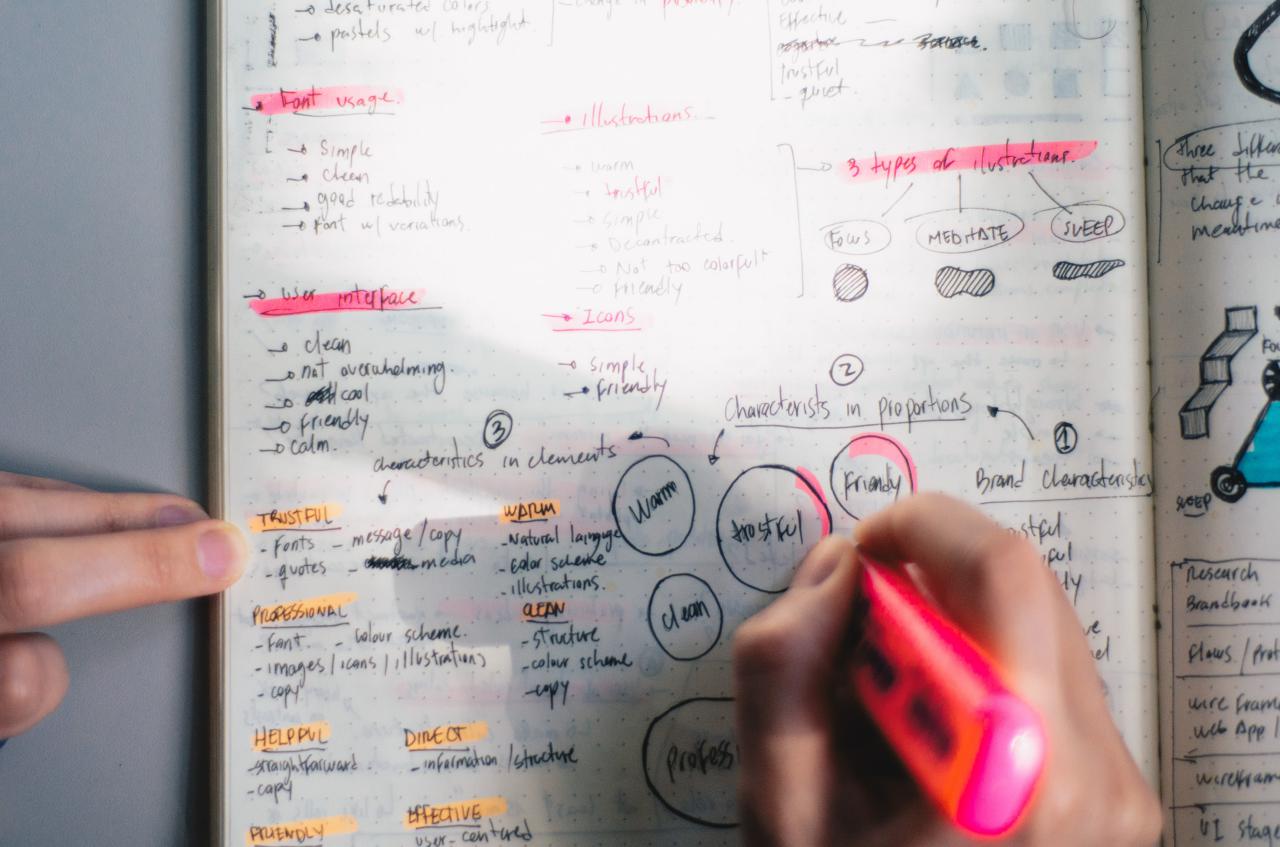 desaturated colors
pastels w/ hightlight.
change in
Effective
trustful
- quiet.
Font usage.
Simple
clean
good redability
Font w/ variations.
user interface
clean
not overwhelming
cool
friendly
calm.
illustrations.
warm
trustful
simple
Decontracted.
Not too colorful
friendly
Icons
simple
friendly
3 types of ilustrations.
FOCUS
MEDITATE
SLEEP
2
Characterists in proportions
1
Brand Characteristics
3
characteristics in elements
Warm
trostful
friendly
clean
professi
TRUSTFUL
- fonts - message/copy
- quotes - media
PROFESSIONAL
- Font - colour scheme.
- images/icons/illustrations
- copy
HELPFUL
- straightforward
- copy
FRIENDLY
WARM
- Natural language
- color scheme
- illustrations.
CLEAN
- structure
- colour scheme
- copy
DIRECT
- information/structure
EFFECTIVE
user-centered
three differ
that the
change
meantime
SLEEP
Research
Brandbook
flows/Prot
wire fram
web App
wirefram
UI stage